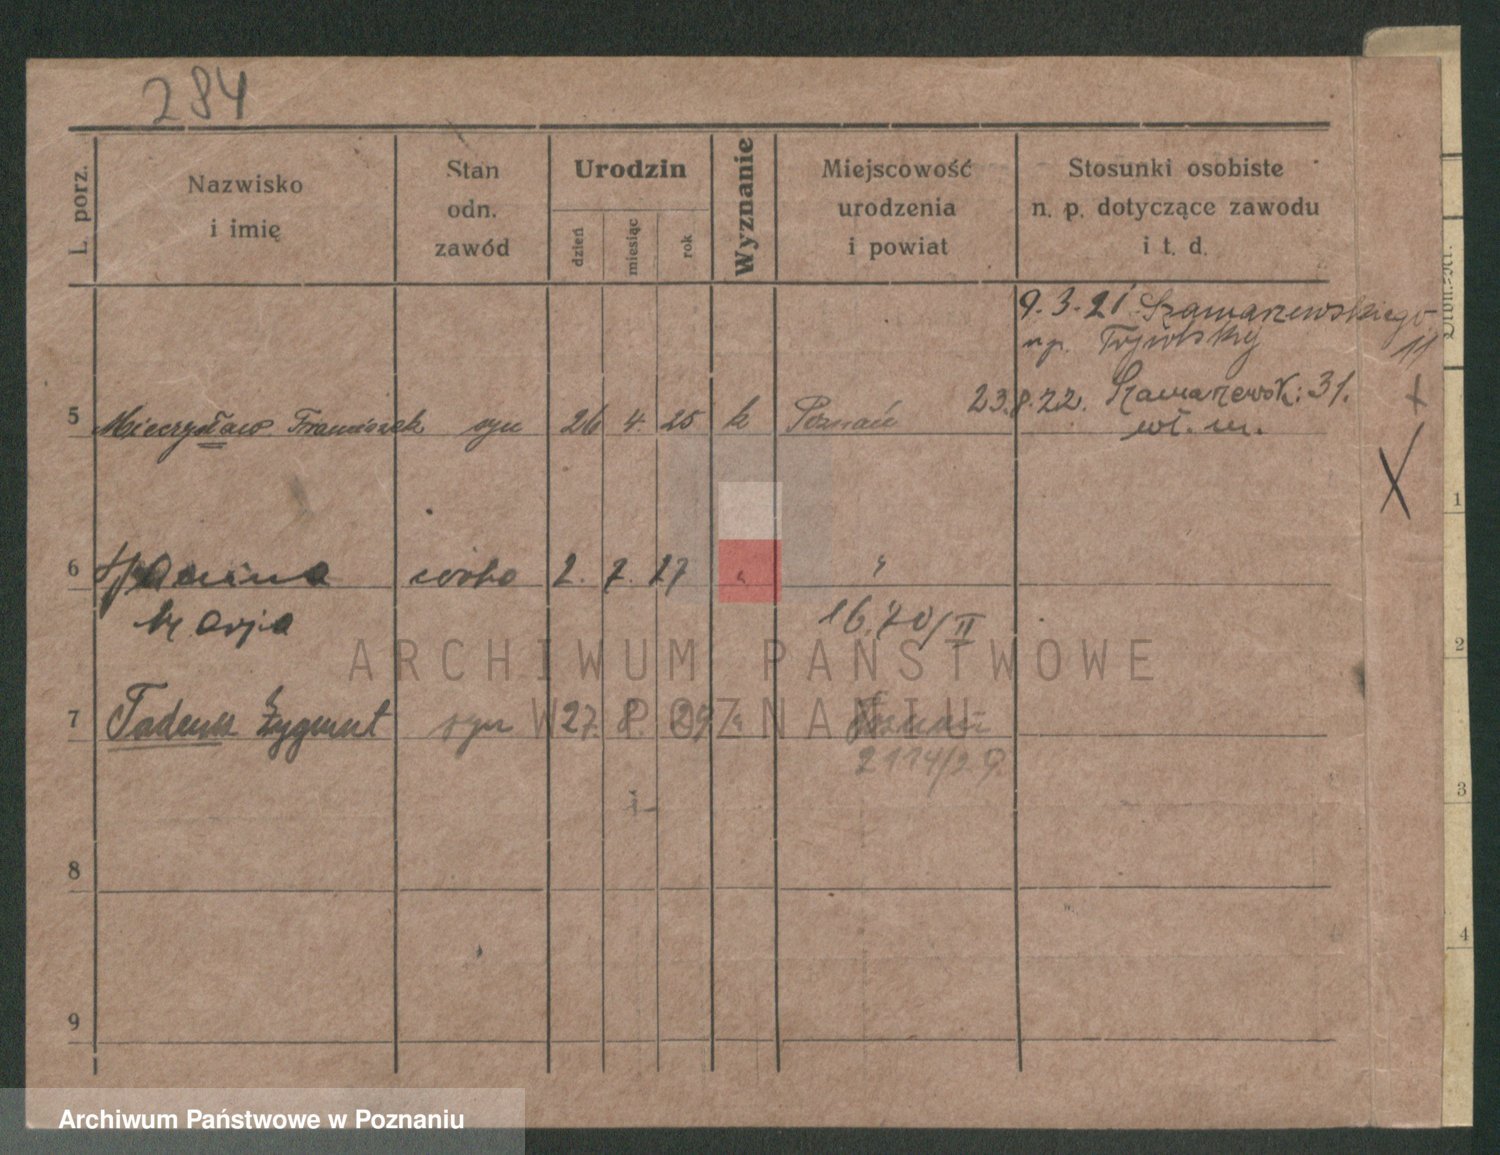 284
L. porz.
Nazwisko
i imię
Stan
odn.
zawód
Urodzin
dzień
miesiąc
rok
Wyznanie
Miejscowość
urodzenia
i powiat
Stosunki osobiste
n. p. dotyczące zawodu
i t. d.
9.3.21 Szamarzewskiego
11
23.8.22. Szamarzewsk: 31.
5 Mieczysław Franciszek syn 26 4. 25 k Poznań
6 Janina 2. 7. 27 " "
Marja
16.70/II
7 Tadeusz Zygmunt syn 27. 8. 29 " Poznań
2114/29.
8
9
1
2
3
4
ARCHIWUM PAŃSTWOWE
W POZNANIU
Archiwum Państwowe w Poznaniu